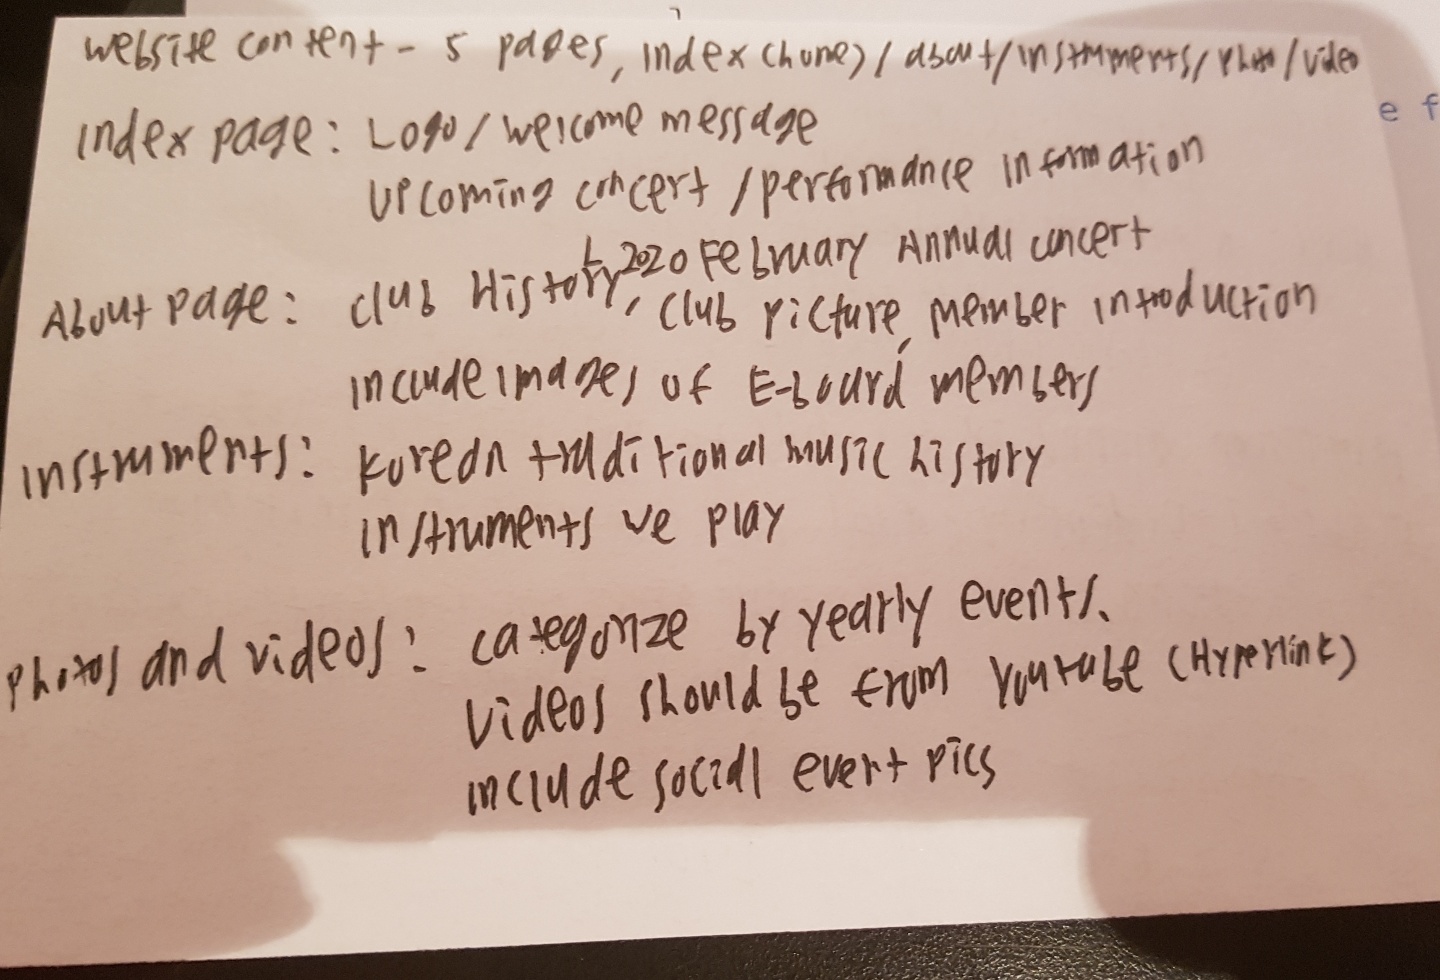 website content - 5 pages, index (home) / about / instruments / photo / video
index page: Logo / welcome message
upcoming concert / performance information
L 2020 February Annual concert
About page: club History, club picture, member introduction
include images of E-board members
instruments: Korean traditional music history
instruments we play
photos and videos: categorize by yearly events.
videos should be from youtube (Hyperlink)
include social event pics
e f